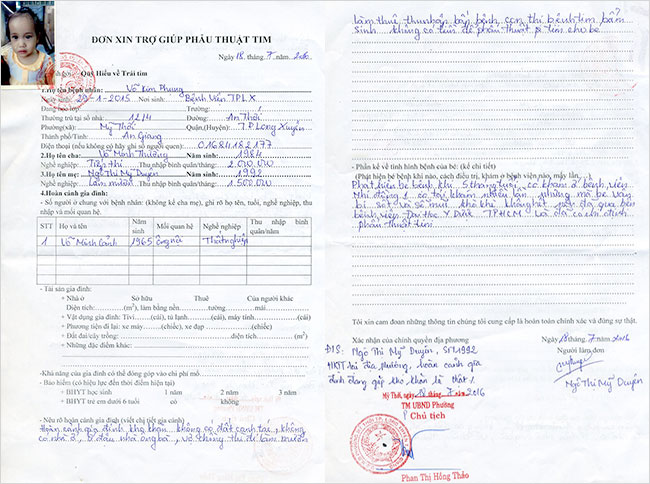 ĐƠN XIN TRỢ GIÚP PHẪU THUẬT TIM
Ngày 18 tháng 7 năm 2016
Quỹ Hiểu về Trái tim
1.Họ tên bệnh nhân: Võ Kim Phụng
Ngày sinh: 29-1-2015 Nơi sinh: Bệnh Viện TPLX
Đang học lớp: Trường:
Thường trú tại số nhà: 12/4 Đường: An Thới
Phường(xã): Mỹ Thới Quận,(Huyện): TP Long Xuyên
Thành phố/Tỉnh: An Giang
Điện thoại (nếu không có hãy ghi số người quen): 01684182177
2.Họ tên cha: Võ Minh Thường Năm sinh: 1984
Nghề nghiệp: Tiếp thị Thu nhập bình quân/tháng: 2.000.000
3.Họ tên mẹ: Ngô Thị Mỹ Duyên Năm sinh: 1992
Nghề nghiệp: Làm mướn Thu nhập bình quân/tháng: 1.500.000
4.Hoàn cảnh gia đình:
- Số người ở chung với bệnh nhân: (không kể cha mẹ), ghi rõ họ tên, tuổi, nghề nghiệp, thu nhập và mối quan hệ.
STT Họ và tên Năm sinh Mối quan hệ Nghề nghiệp Thu nhập bình quân/năm
1 Võ Minh Cảnh 1965 ông nội Thất nghiệp
- Tài sản gia đình:
+ Nhà ở Sở hữu Thuê Của người khác
Diện tích: (m²), làm bằng nền tường mái
+ Vật dụng gia đình: Tivi (cái), tủ lạnh (cái), máy tính (cái)
+ Phương tiện đi lại: xe máy (chiếc), xe đạp (chiếc)
+ Đất đai/cây trồng: diện tích (m²)
+ Những đặc điểm khác:
-Khả năng của gia đình có thể đóng góp vào chi phí mổ:
- Bảo hiểm (có hiệu lực đến thời điểm hiện tại)
+ BHYT học sinh 1 năm 2 năm 3 năm
+ BHYT trẻ em dưới 6 tuổi có không
- Nêu rõ hoàn cảnh gia đình (viết chi tiết hoàn cảnh)
Hoàn cảnh gia đình khó khăn không có đất canh tác, không
có nhà ở, ở đậu nhà ông bà, vợ chồng thì đi làm mướn
làm thuê, thu nhập bấp bênh, con thì bệnh tim bẩm
sinh không có tiền để phẫu thuật tim cho bé
- Phần kể về tình hình bệnh của bé: (kể chi tiết)
(Phát hiện bé bệnh khi nào, cách điều trị, khám ở bệnh viện nào, mấy lần,
Phát hiện bé bệnh khi 5 tháng tuổi, có khám ở bệnh viện
Nhi đồng 1 có tái khám nhiều lần, nhưng mà bé vẫn
bị sốt và sổ mũi thở khò không hết nên đã qua bên
bệnh viện Đại Học Y Dược TPHCM và đã có chỉ định
phẫu thuật tim
Tôi xin cam đoan những thông tin chúng tôi cung cấp là hoàn toàn chính xác và đúng sự thật.
Xác nhận của chính quyền địa phương
Ngày 18 tháng 7 năm 2016
Người làm đơn
Ngô Thị Mỹ Duyên
Ngô Thị Mỹ Duyên, SN 1992
HKTT tại địa phương, hoàn cảnh gia
đình đang gặp khó khăn là thật.
Mỹ Thới, ngày 18 / 7 / 2016
TM UBND Phường
Chủ tịch
Phan Thị Hồng Thảo